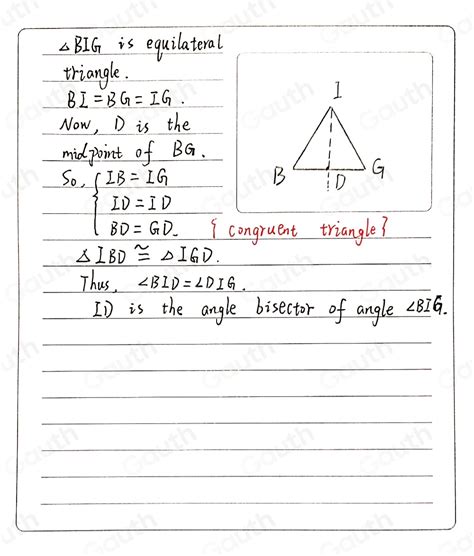 △BIG is equilateral
triangle.
BI=BG=IG.
Now, D is the
midpoint of BG.
So, { IB=IG
ID=ID
BD=GD. { congruent triangle }
△IBD ≅ △IGD.
Thus, ∠BID=∠DIG.
ID is the angle bisector of angle ∠BIG.
I
B D G
Gauth